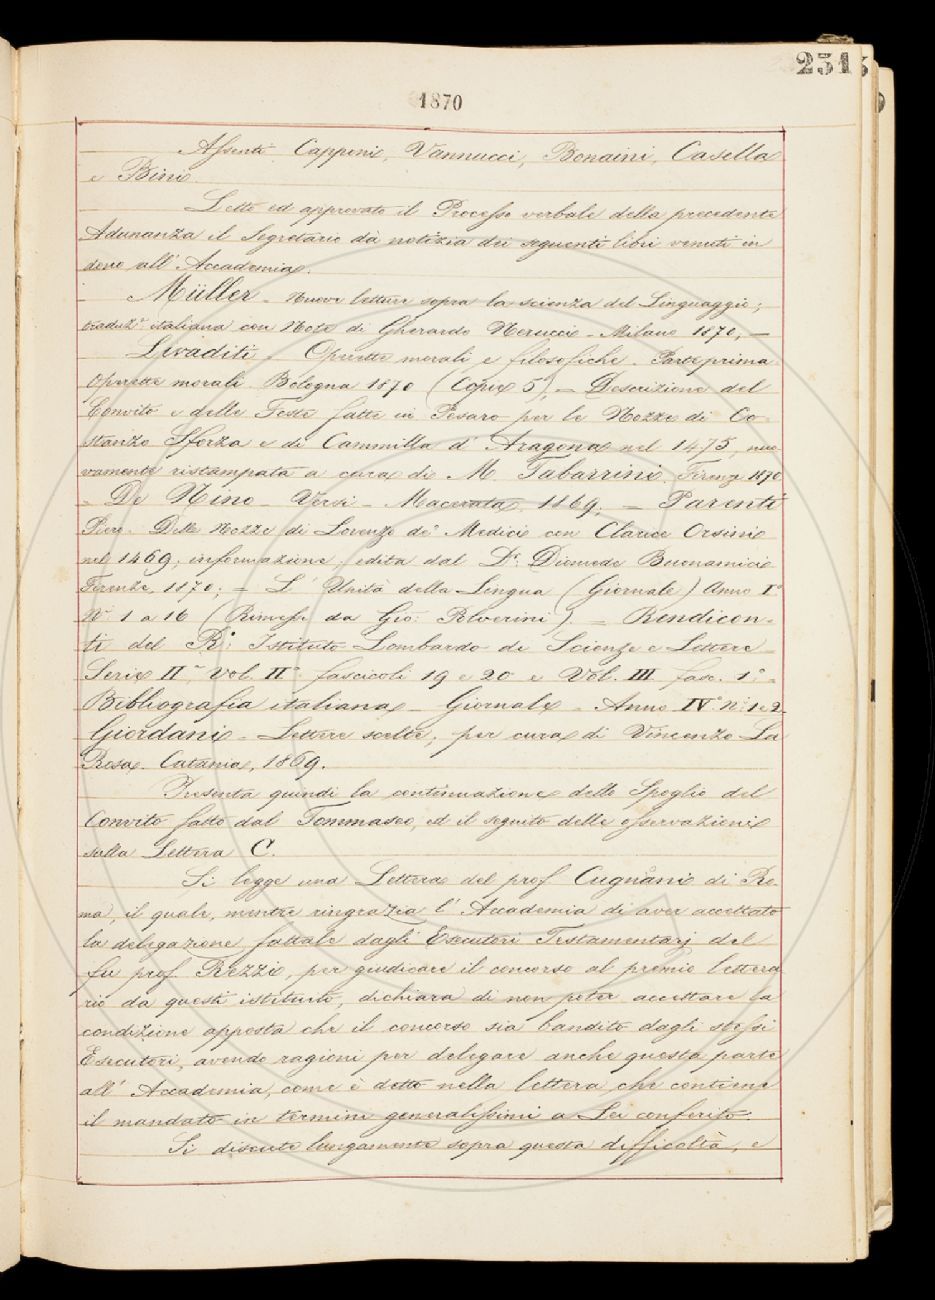 231
1870
Assenti Capponi, Vannucci, Bonaini, Casella
e Bini.
Letto ed approvato il Processo verbale della precedente
Adunanza il Segretario dà notizia dei seguenti libri venuti in
dono all' Accademia.
Müller - Nuove letture sopra la scienza del Linguaggio;
traduzne italiana con Note di Gherardo Nerucci - Milano 1870, —
Levaditi - Operette morali e filosofiche. Parte prima.
Operette morali. Bologna 1870 (Copie 5) = Descrizione del
Convito e delle Feste fatte in Pesaro per le Nozze di Co-
stanzo Sforza e di Cammilla d' Aragona nel 1475, nuo
vamente ristampata a cura di M. Tabarrini. Firenze 1870
= De Nino - Versi - Macerata 1869, = Parenti
Piero. Delle Nozze di Lorenzo de' Medici con Clarice Orsini
nel 1469; informazione edita dal Dr. Diomede Buonamici
Firenze, 1870; = L' Unità della Lingua (Giornale) Anno Io
No 1 a 16 (Rimessi da Gio: Polverini) = Rendicon-
ti del R.o Istituto Lombardo di Scienze e Lettere -
Serie IIa, Vol. IIo fascicoli 19 e 20 e Vol. III fasc. 1o =
Bibliografia italiana - Giornale - Anno IVo Ni 1 e 2
Giordani - Lettere scelte, per cura di Vincenzo La
Rosa. Catania, 1869.
Presenta quindi la continuazione dello Spoglio del
Convito fatto dal Tommaseo, ed il seguito delle osservazioni
sulla Lettera C.
Si legge una Lettera del prof. Cugnani di Ro-
ma, il quale, mentre ringrazia l' Accademia di aver accettato
la delegazione fattale dagli Esecutori Testamentarj del
fu prof Rezzi, per giudicare il concorso al premio lettera
rio da questi istituito, dichiara di non poter accettare la
condizione apposta che il concorso sia bandito dagli stessi
Esecutori, avendo ragioni per delegare anche questa parte
all' Accademia, come è detto nella lettera che contiene
il mandato in termini generalissimi a Lei conferito.
Si discute lungamente sopra questa difficoltà, e